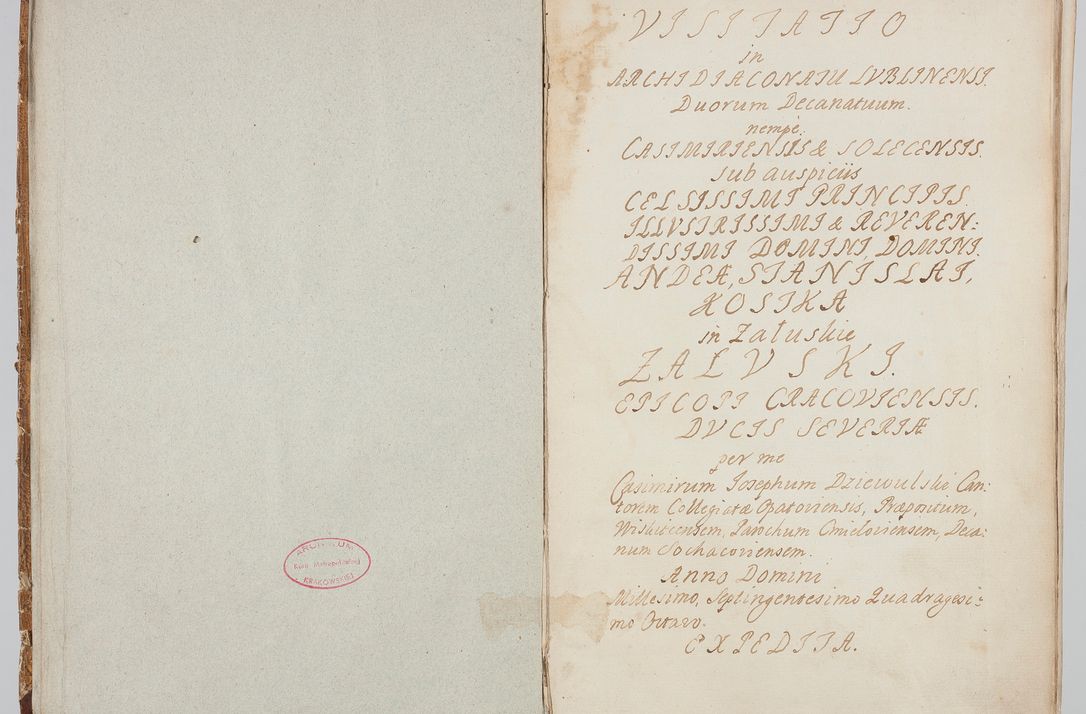 ARCHIWUM
Kurii Metropolitalnej
KRAKOWSKIEJ
VISITATIO
in
ARCHIDIACONATU LVBLINENSI.
Duorum Decanatuum.
nempè.
CASIMIRIENSIS & SOLECENSIS.
sub auspiciis
CELSISSIMI PRINCIPIS.
ILLVSTRISSIMI & REVEREN:
DISSIMI DOMINI, DOMINI.
ANDEÆ, STANISLAI,
KOSTKA
in Załuskie
ZALVSKI.
EPICOPI CRACOVIENSIS.
DVCIS SEVERIÆ
per me
Casimirum Josephum Dziewulski Can:
torem Collegiatæ Opatoviensis, Præpositum,
Parochum Cmieloviensem, Deca:
num Sochacoviensem.
Anno Domini
Millesimo, Septingentesimo Quadragesi:
mo Octavo.
EXPEDITA.